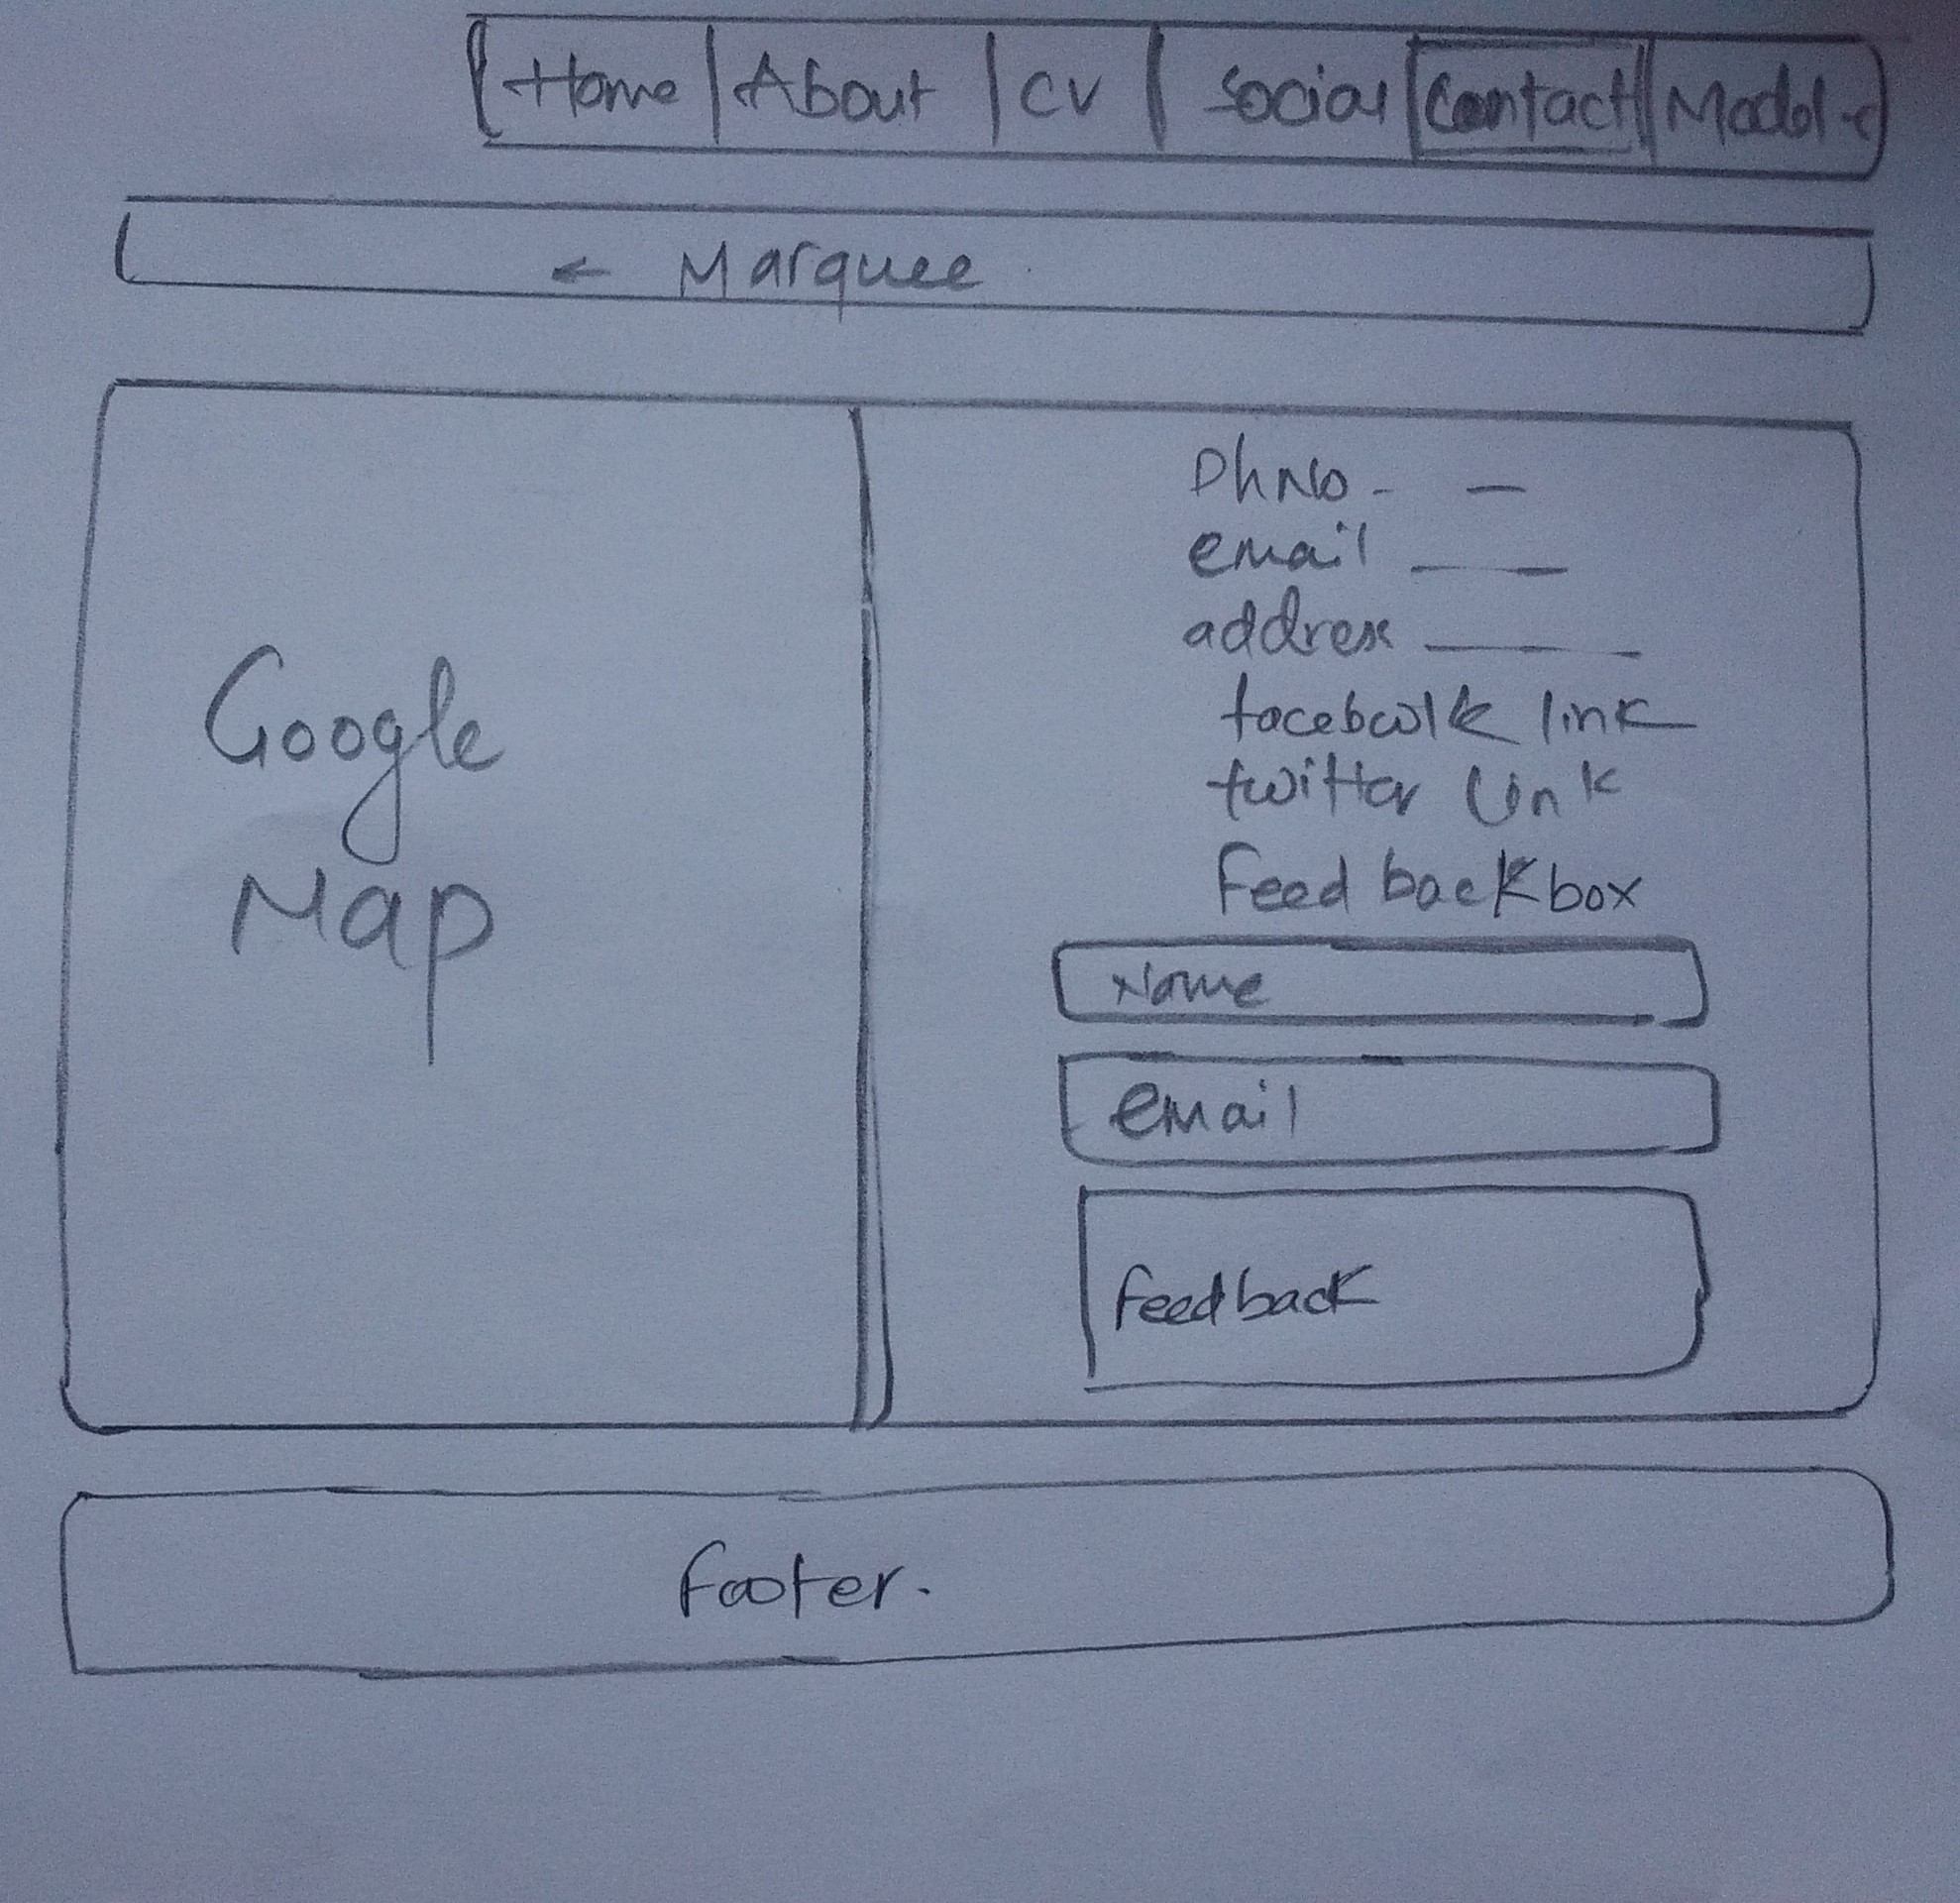 Home | About | CV | Social | Contact |
← Marquee
Google
Map
Ph No - —
email ____
address ____
facebook link
twitter link
Feed back box
Name
email
Feedback
Footer.